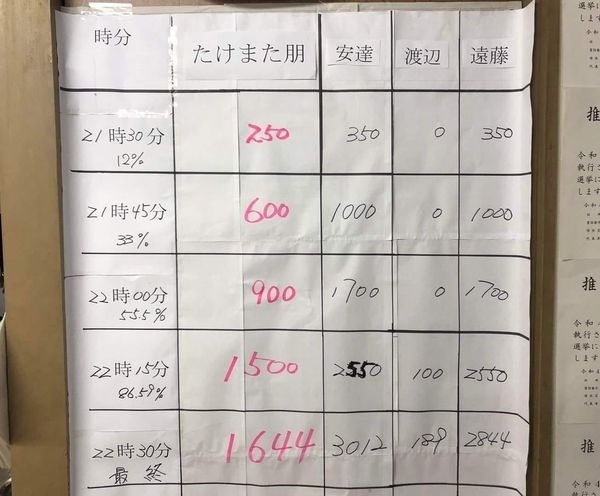 時分 たけまた朋 安達 渡辺 遠藤
21時30分 250 350 0 350
12%
21時45分 600 1000 0 1000
33%
22時00分 900 1700 0 1700
55.5%
22時15分 1500 2550 100 2550
86.59%
22時30分 1644 3012 189 2844
最終
選挙に
します
推
令和
執行さ
選挙に
します
推
令和4
執行さ
選挙に
します
推
令和4
執行さ